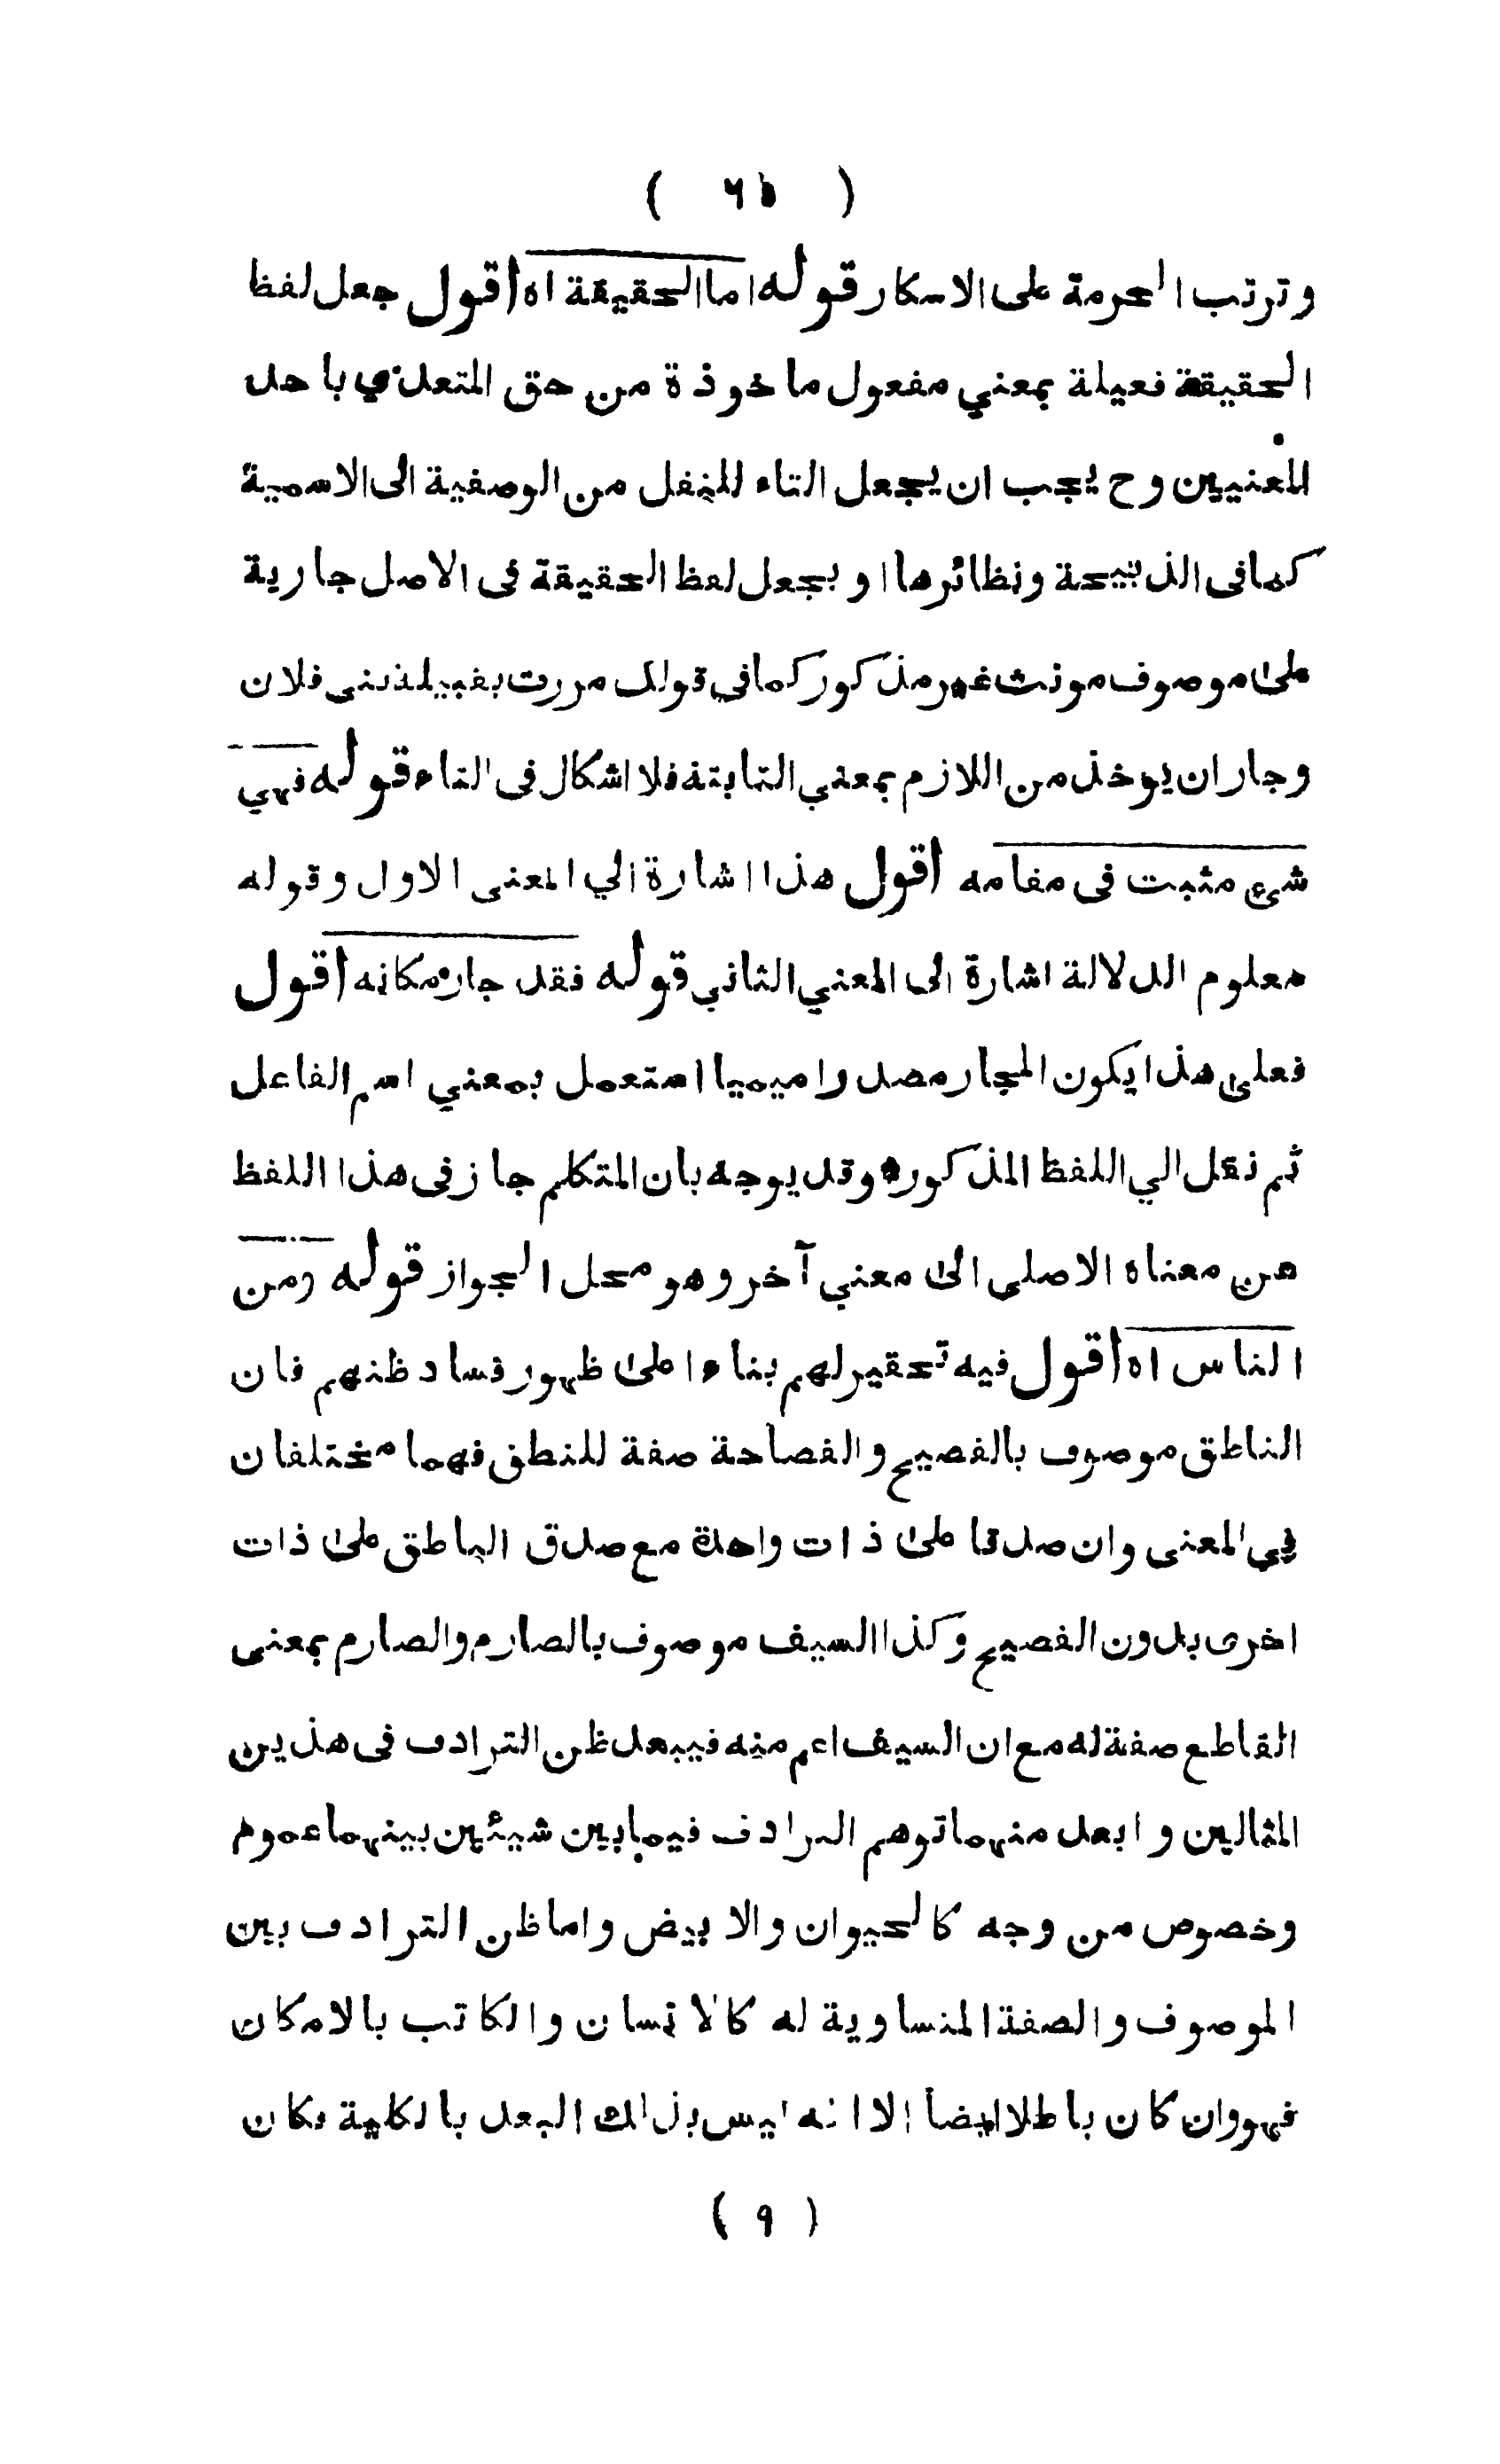 ( ٦٥ )
وترتب الحرمة على الاسكار قوله اما الحقيقة اه اقول جعل لفظ
الحقيقة فعيلة بمعني مفعول ماخوذة من حق المتعدي باحد
المعنيين وح يجب ان يجعل التاء للنقل من الوصفية الى الاسمية
كما فى الذبيحة ونظائرها او يجعل لفظ الحقيقة فى الاصل جارية
على موصوف مونث غير مذكور كما فى قولك مررت بقبيلة بنى فلان
وجاز ان يوخذ من اللازم بمعني الثابتة فلا اشكال فى التاء قوله فهي
شيء مثبت فى مقامه اقول هذا اشارة الي المعنى الاول وقوله
معلوم الدلالة اشارة الى المعني الثاني قوله فقد جاز مكانه اقول
فعلى هذا يكون المجاز مصدرا ميميا استعمل بمعني اسم الفاعل
ثم نقل الي اللفظ المذكور وقد يوجه بان المتكلم جاز فى هذا اللفظ
من معناه الاصلى الى معني آخر وهو محل الجواز قوله ومن
الناس اه اقول فيه تحقير لهم بناءا على ظهور فساد ظنهم فان
الناطق موصوف بالفصيح والفصاحة صفة للنطق فهما مختلفان
في المعنى وان صدقا على ذات واحدة مع صدق الناطق على ذات
اخرى بدون الفصيح وكذا السيف موصوف بالصارم والصارم بمعنى
القاطع صفة له مع ان السيف اعم منه فيبعد ظن الترادف فى هذين
المثالين وابعد منهما توهم الترادف فيما بين شيئين بينهما عموم
وخصوص من وجه كالحيوان والابيض واما ظن الترادف بين
الموصوف والصفة المتساوية له كالانسان والكاتب بالامكان
فهو وان كان باطلا ايضا الا انه ليس بذلك البعد بالكلية فكان
( ٩ )